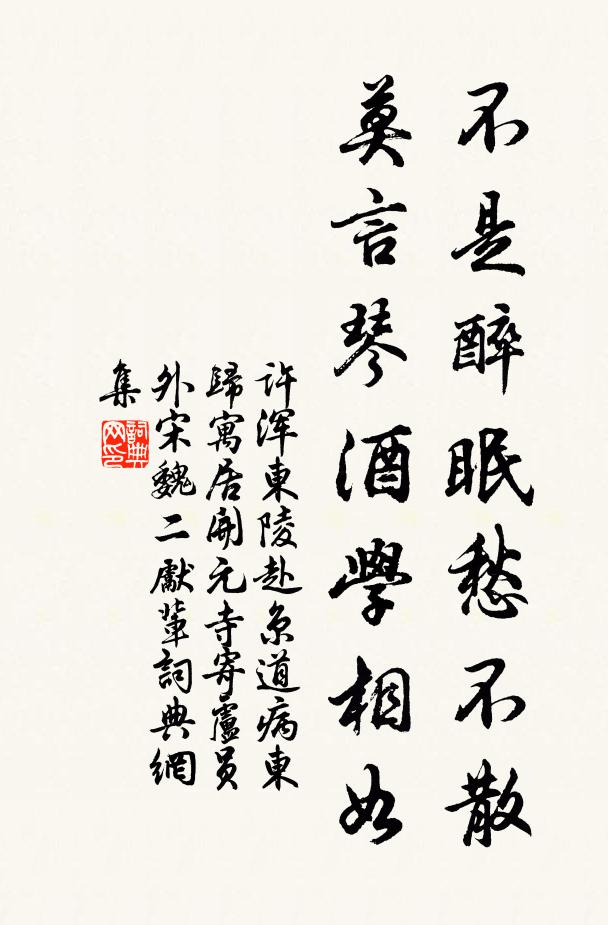 不是醉眠愁不散
莫言琴酒學相如
許渾東陵赴京道病東
歸寓居開元寺寄盧員
外宋魏二獻輩詞典網
集
詞典網印